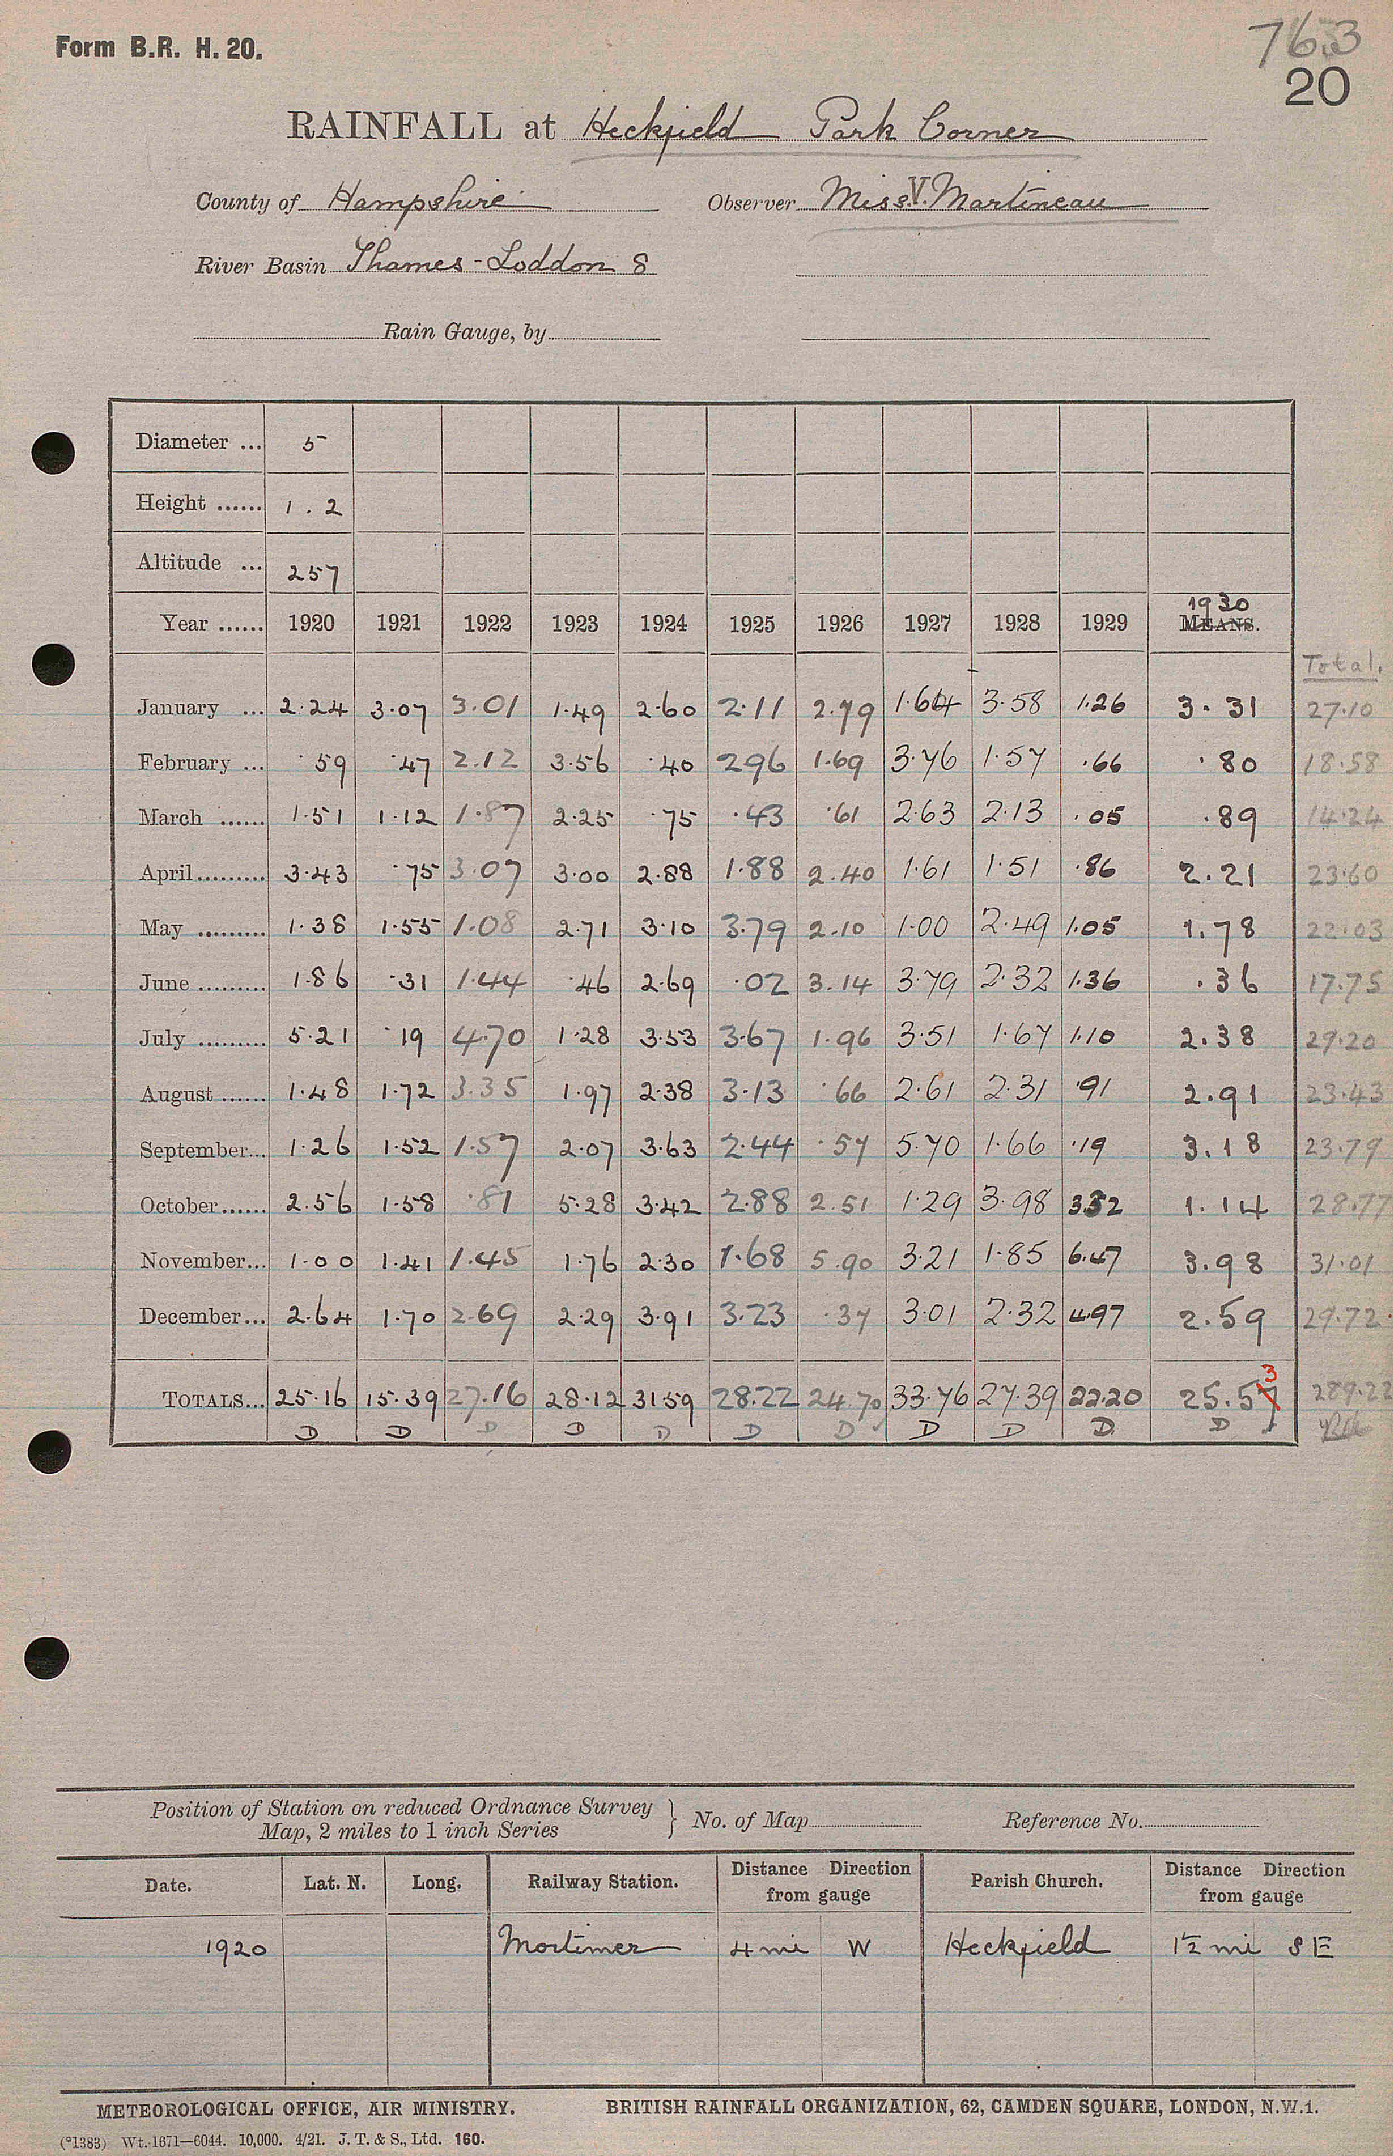 Form B.R. H. 20.
763
20
RAINFALL at Heckfield Park Corner
County of Hampshire Observer Miss V. Martineau
River Basin Thames - Loddon 8
Rain Gauge, by
Diameter ... 5
Height ...... 1.2
Altitude ... 257
Year ...... 1920 1921 1922 1923 1924 1925 1926 1927 1928 1929 1930 MEANS.
Total.
January ... 2.24 3.07 3.01 1.49 2.60 2.11 2.79 1.64 3.58 1.26 3.31 27.10
February ... .59 .47 2.12 3.56 .40 2.96 1.69 3.76 1.57 .66 .80 18.58
March ...... 1.51 1.12 1.87 2.25 .75 .43 .61 2.63 2.13 .05 .89 14.24
April ......... 3.43 .75 3.07 3.00 2.88 1.88 2.40 1.61 1.51 .86 2.21 23.60
May ......... 1.38 1.55 1.08 2.71 3.10 3.79 2.10 1.00 2.49 1.05 1.78 22.03
June ......... 1.86 .31 1.44 .46 2.69 .02 3.14 3.79 2.32 1.36 .36 17.75
July ......... 5.21 .19 4.70 1.28 3.53 3.67 1.96 3.51 1.67 1.10 2.38 29.20
August ...... 1.48 1.72 3.35 1.97 2.38 3.13 .66 2.61 2.31 .91 2.91 23.43
September... 1.26 1.52 1.57 2.07 3.63 2.44 .57 5.70 1.66 .19 3.18 23.79
October...... 2.56 1.58 .81 5.28 3.42 2.88 2.51 1.29 3.98 3.32 1.14 28.77
November... 1.00 1.41 1.45 1.76 2.30 1.68 5.90 3.21 1.85 6.47 3.98 31.01
December... 2.64 1.70 2.69 2.29 3.91 3.23 .37 3.01 2.32 4.97 2.59 29.72
3
TOTALS... 25.16 15.39 27.16 28.12 31.59 28.22 24.70 33.76 27.39 22.20 25.57 289.22
D D D D D D D D D D D
Position of Station on reduced Ordnance Survey Map, 2 miles to 1 inch Series } No. of Map Reference No.
Date. Lat. N. Long. Railway Station. Distance Direction from gauge Parish Church. Distance Direction from gauge
1920 Mortimer 4 mi W Heckfield 1½ mi SE
METEOROLOGICAL OFFICE, AIR MINISTRY. BRITISH RAINFALL ORGANIZATION, 62, CAMDEN SQUARE, LONDON, N.W.1.
(*1383) Wt. 1671—6044. 10,000. 4/21. J. T. & S., Ltd. 160.